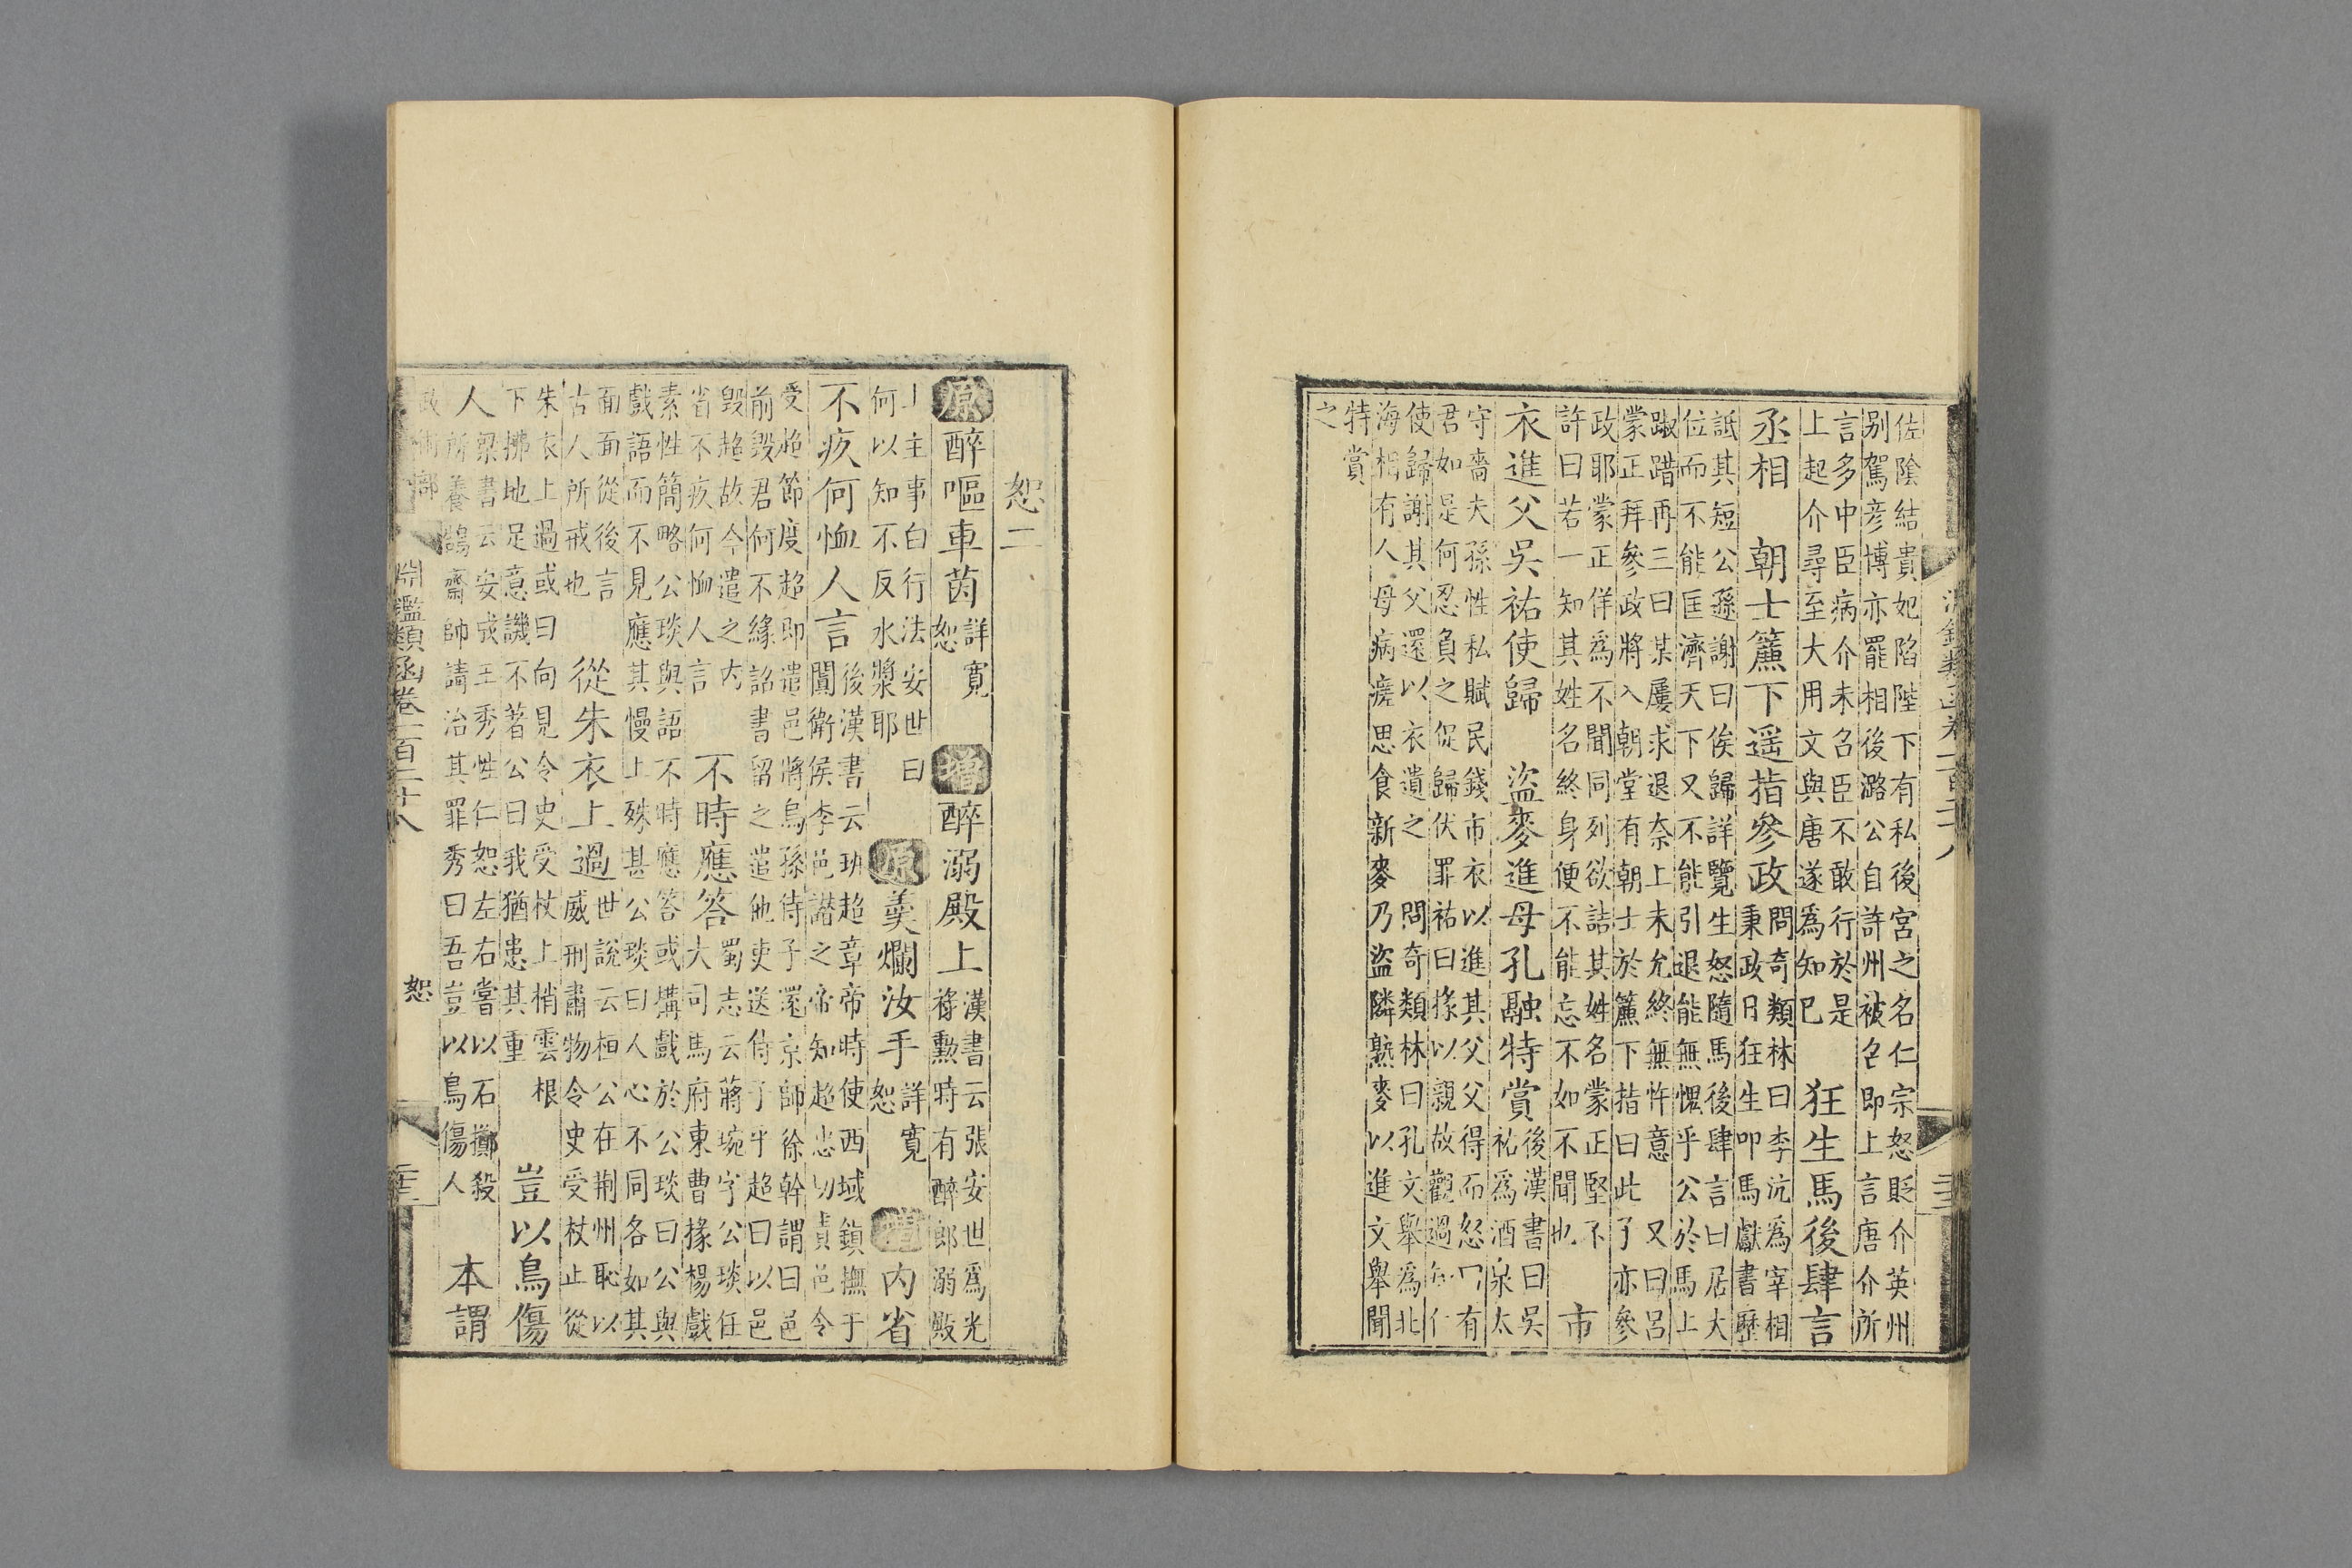 佐陰結貴妃陷陛下有私後宮之名仁宗怒貶介英州
别駕彦博亦罷相後潞公自許州被召即上言唐介所
言多中臣病介未召臣不敢行於是
上起介尋至大用文與唐遂爲知已
狂生馬後肆言
丞相
朝士簾下遥指參政
問奇類林曰李沆爲宰相
秉政日狂生叩馬獻書歷
詆其短公遜謝曰俟歸詳覽生怒隨馬後肆言曰居大
位而不能匡濟天下又不能引退能無愧乎公於馬上
踧踖再三曰某屢求退奈上未允終無忤意
又曰呂
蒙正拜參政將入朝堂有朝士於簾下指曰此
了亦參
政耶蒙正佯爲不聞同列欲詰其姓名蒙正堅不
許曰若一知其姓名終身便不能忘不如不聞也
市
衣進父吳祐使歸
盜麥進母孔融特賞
後漢書曰吳
祐爲酒泉太
守嗇夫孫性私賦民錢市衣以進其父父得而怒曰有
君如是何忍負之促歸伏罪祐曰掾以親故觀過知仁
使歸謝其父還以衣遺之
問奇類林曰孔文舉爲北
海相有人母病瘥思食新麥乃盜隣熟麥以進文舉聞
特賞
之
恕二
原
醉嘔車茵
詳寛
恕
增
醉溺殿上
漢書云張安世爲光
祿勲時有醉郎溺殿
上主事白行法安世曰
何以知不反水漿耶
原
羹爛汝手
詳寛
恕
增
内省
不疚何恤人言
後漢書云班超章帝時使西域鎮撫于
闐衛侯李邑譖之帝知超忠切責邑令
受超節度超即遣邑將烏孫侍子還京師徐幹謂曰邑
前毀君何不緣詔書留之遣他吏送侍子乎超曰以邑
毀超故今遣之内
省不疚何恤人言
不時應答
蜀志云蔣琬字公琰任
大司馬府東曹掾楊戲
素性簡略公琰與語不時應答或搆戲於公琰曰公與
戲語而不見應其慢上殊甚公琰曰人心不同各如其
面面從後言
古人所戒也
從朱衣上過
世說云桓公在荆州恥以
威刑肅物令史受杖止從
朱衣上過或曰向見令史受杖上梢雲根
下拂地足意譏不著公曰我猶患其重
豈以鳥傷
人
梁書云安成王秀性仁恕左右嘗以石擲殺
所養鵠齋帥請治其罪秀曰吾豈以鳥傷人
本謂
政術部
淵鑑類函卷二百二十八
恕